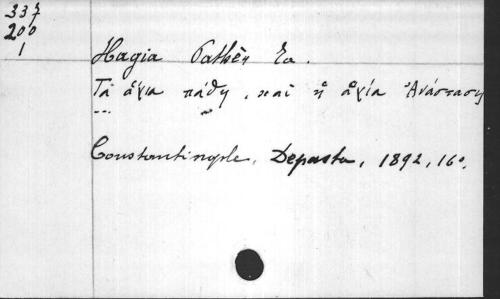 337
200
1
Hagia Pathēn Ta.
Τὰ ἅγια πάθη, καὶ ἡ ἁγία Ἀνάστασις
...
Constantinople, Depasta, 1892, 16°.